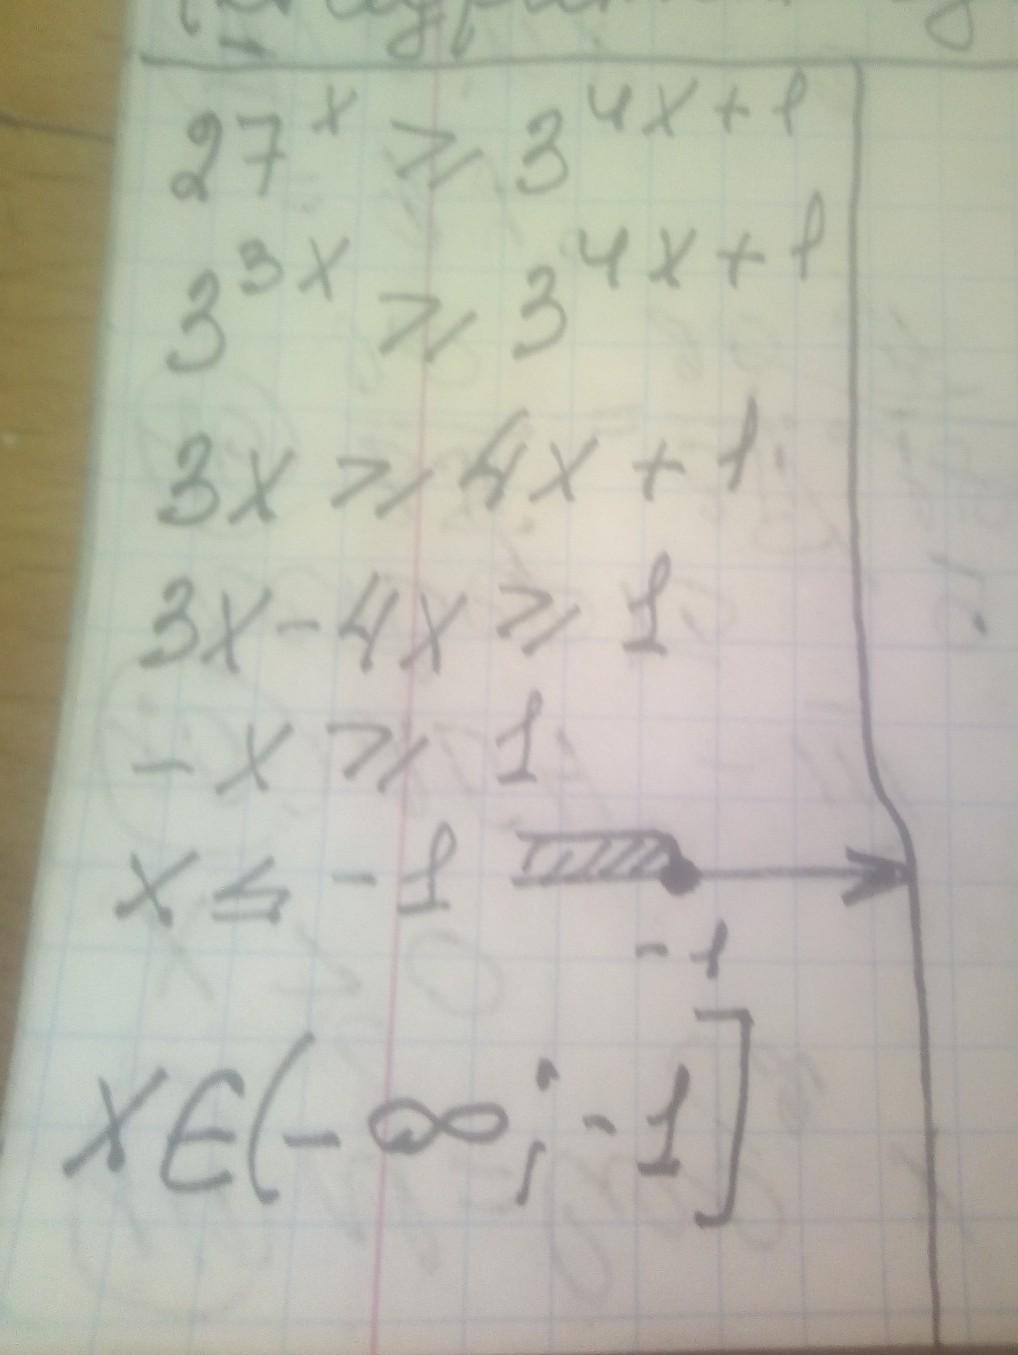 27^x ⩾ 3^{4x+1}
3^{3x} ⩾ 3^{4x+1}
3x ⩾ 4x + 1
3x - 4x ⩾ 1
- x ⩾ 1
x ⩽ - 1
- 1
x ∈ (- ∞; - 1]